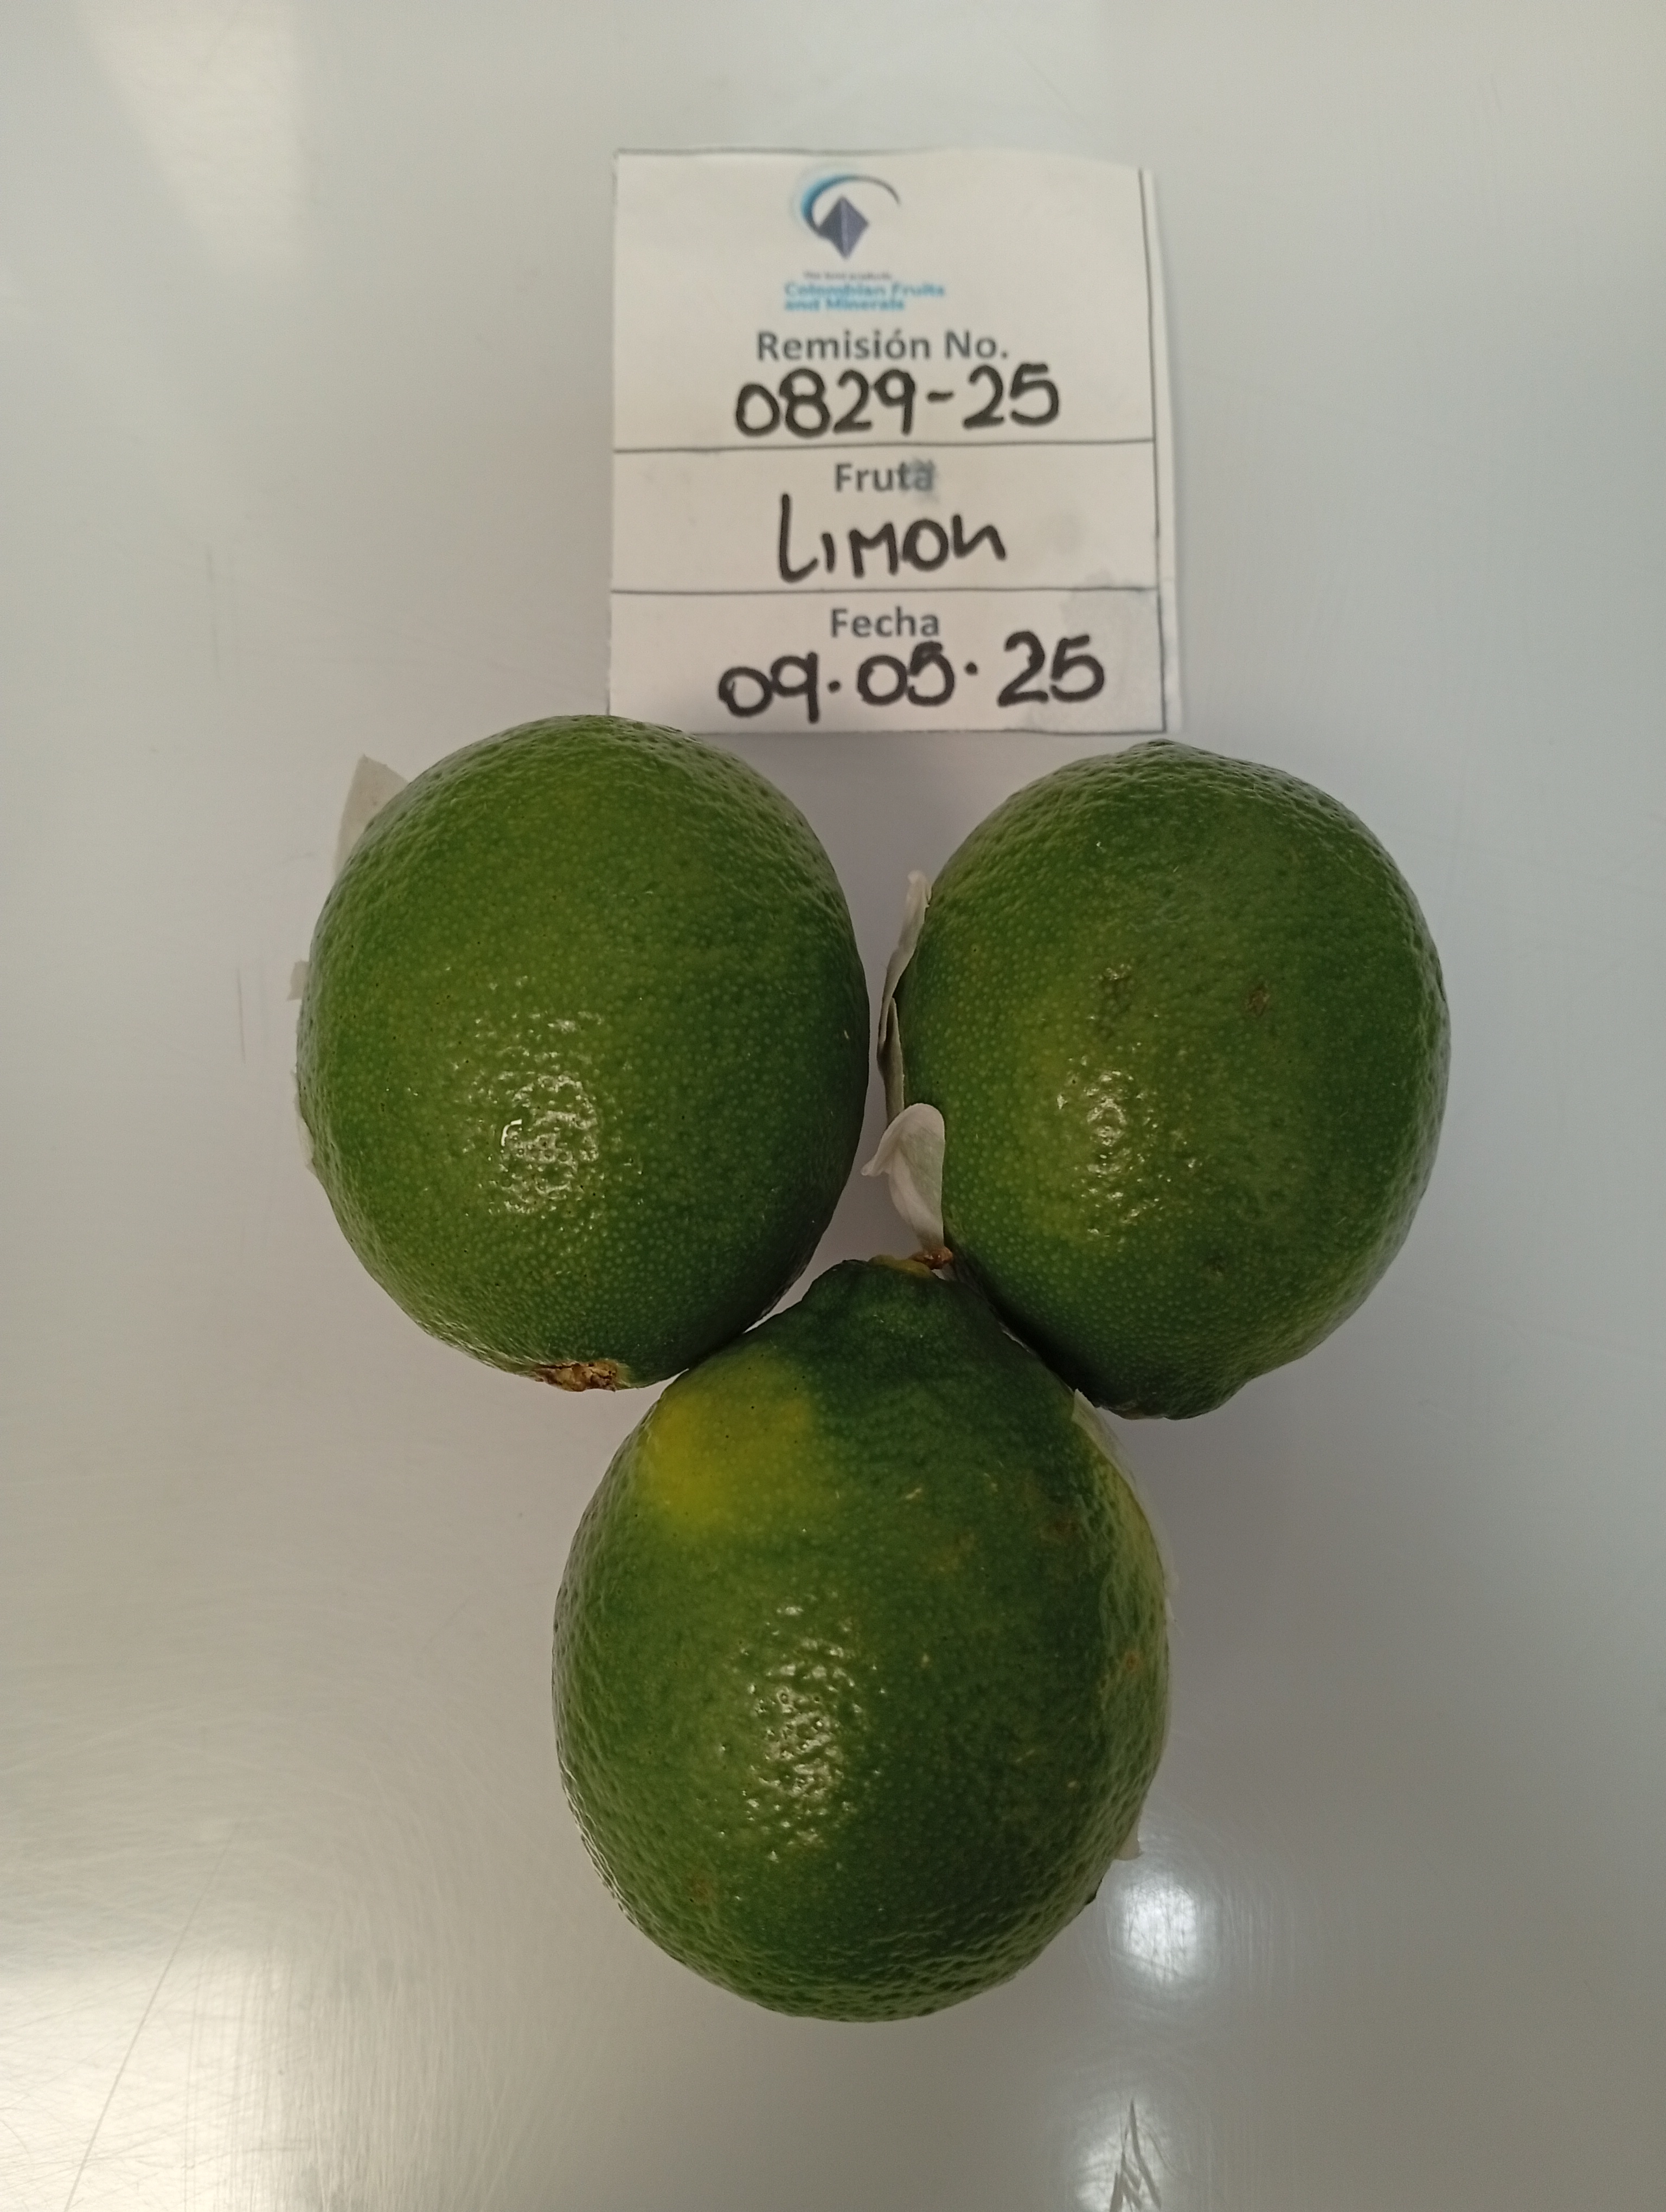 Colombian Fruits
and Minerals
Remisión No.
0829-25
Fruta
LIMON
Fecha
09.05.25